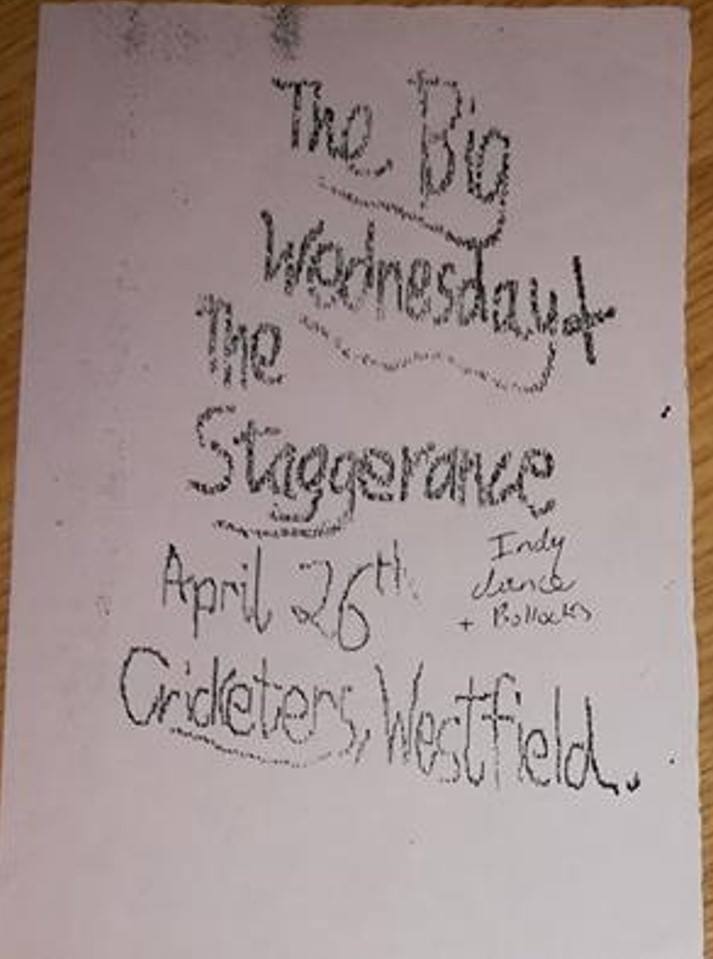 The Big
Wednesday +
The
Staggerance
April 26th
Indy
dance
+ Bollocks
Cricketers, Westfield.